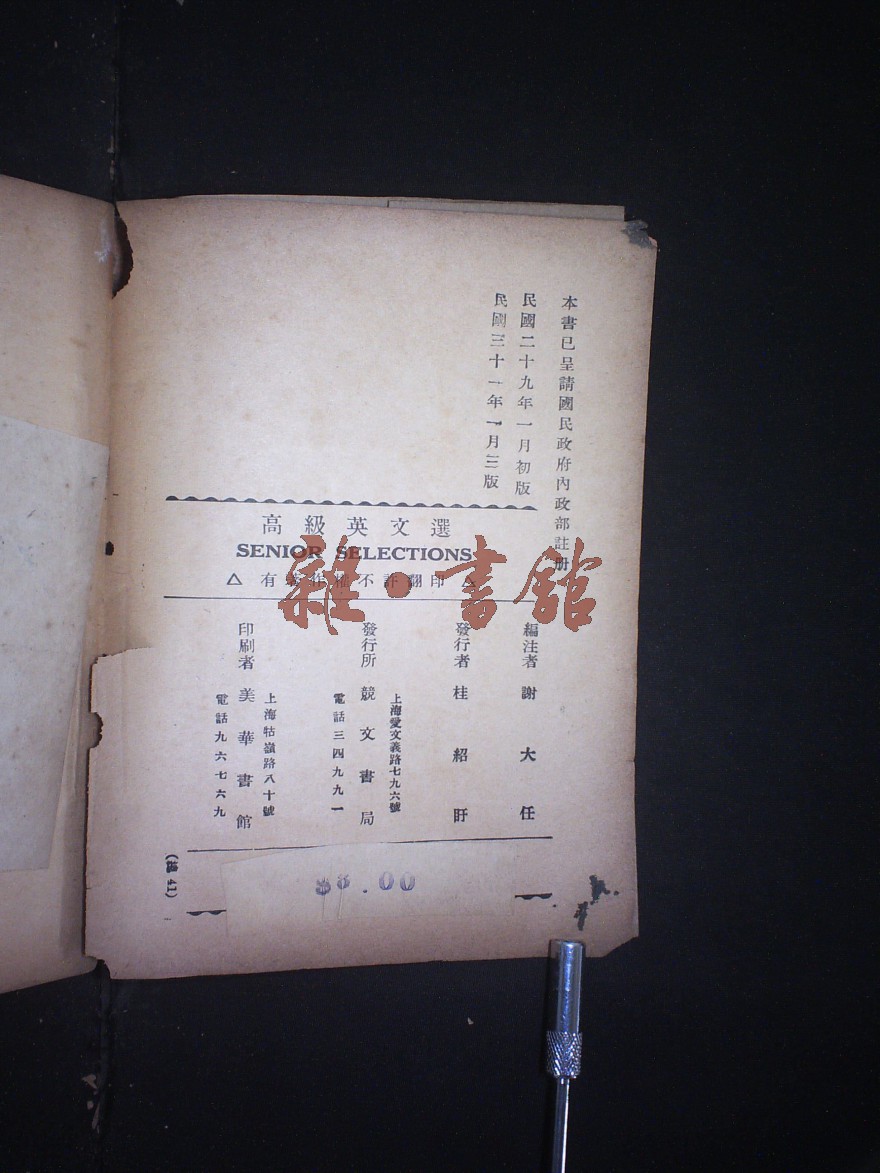 本書已呈請國民政府內政部註册
民國二十九年一月初版
民國三十一年一月三版
高級英文選
SENIOR SELECTIONS
△ 有著作權不許翻印 △
編注者 謝大任
發行者 桂紹盱
上海愛文義路七九六號
發行所 競文書局
電話三四九九一
上海牯嶺路八十號
印刷者 美華書館
電話九六七六九
$3.00
雜·書館